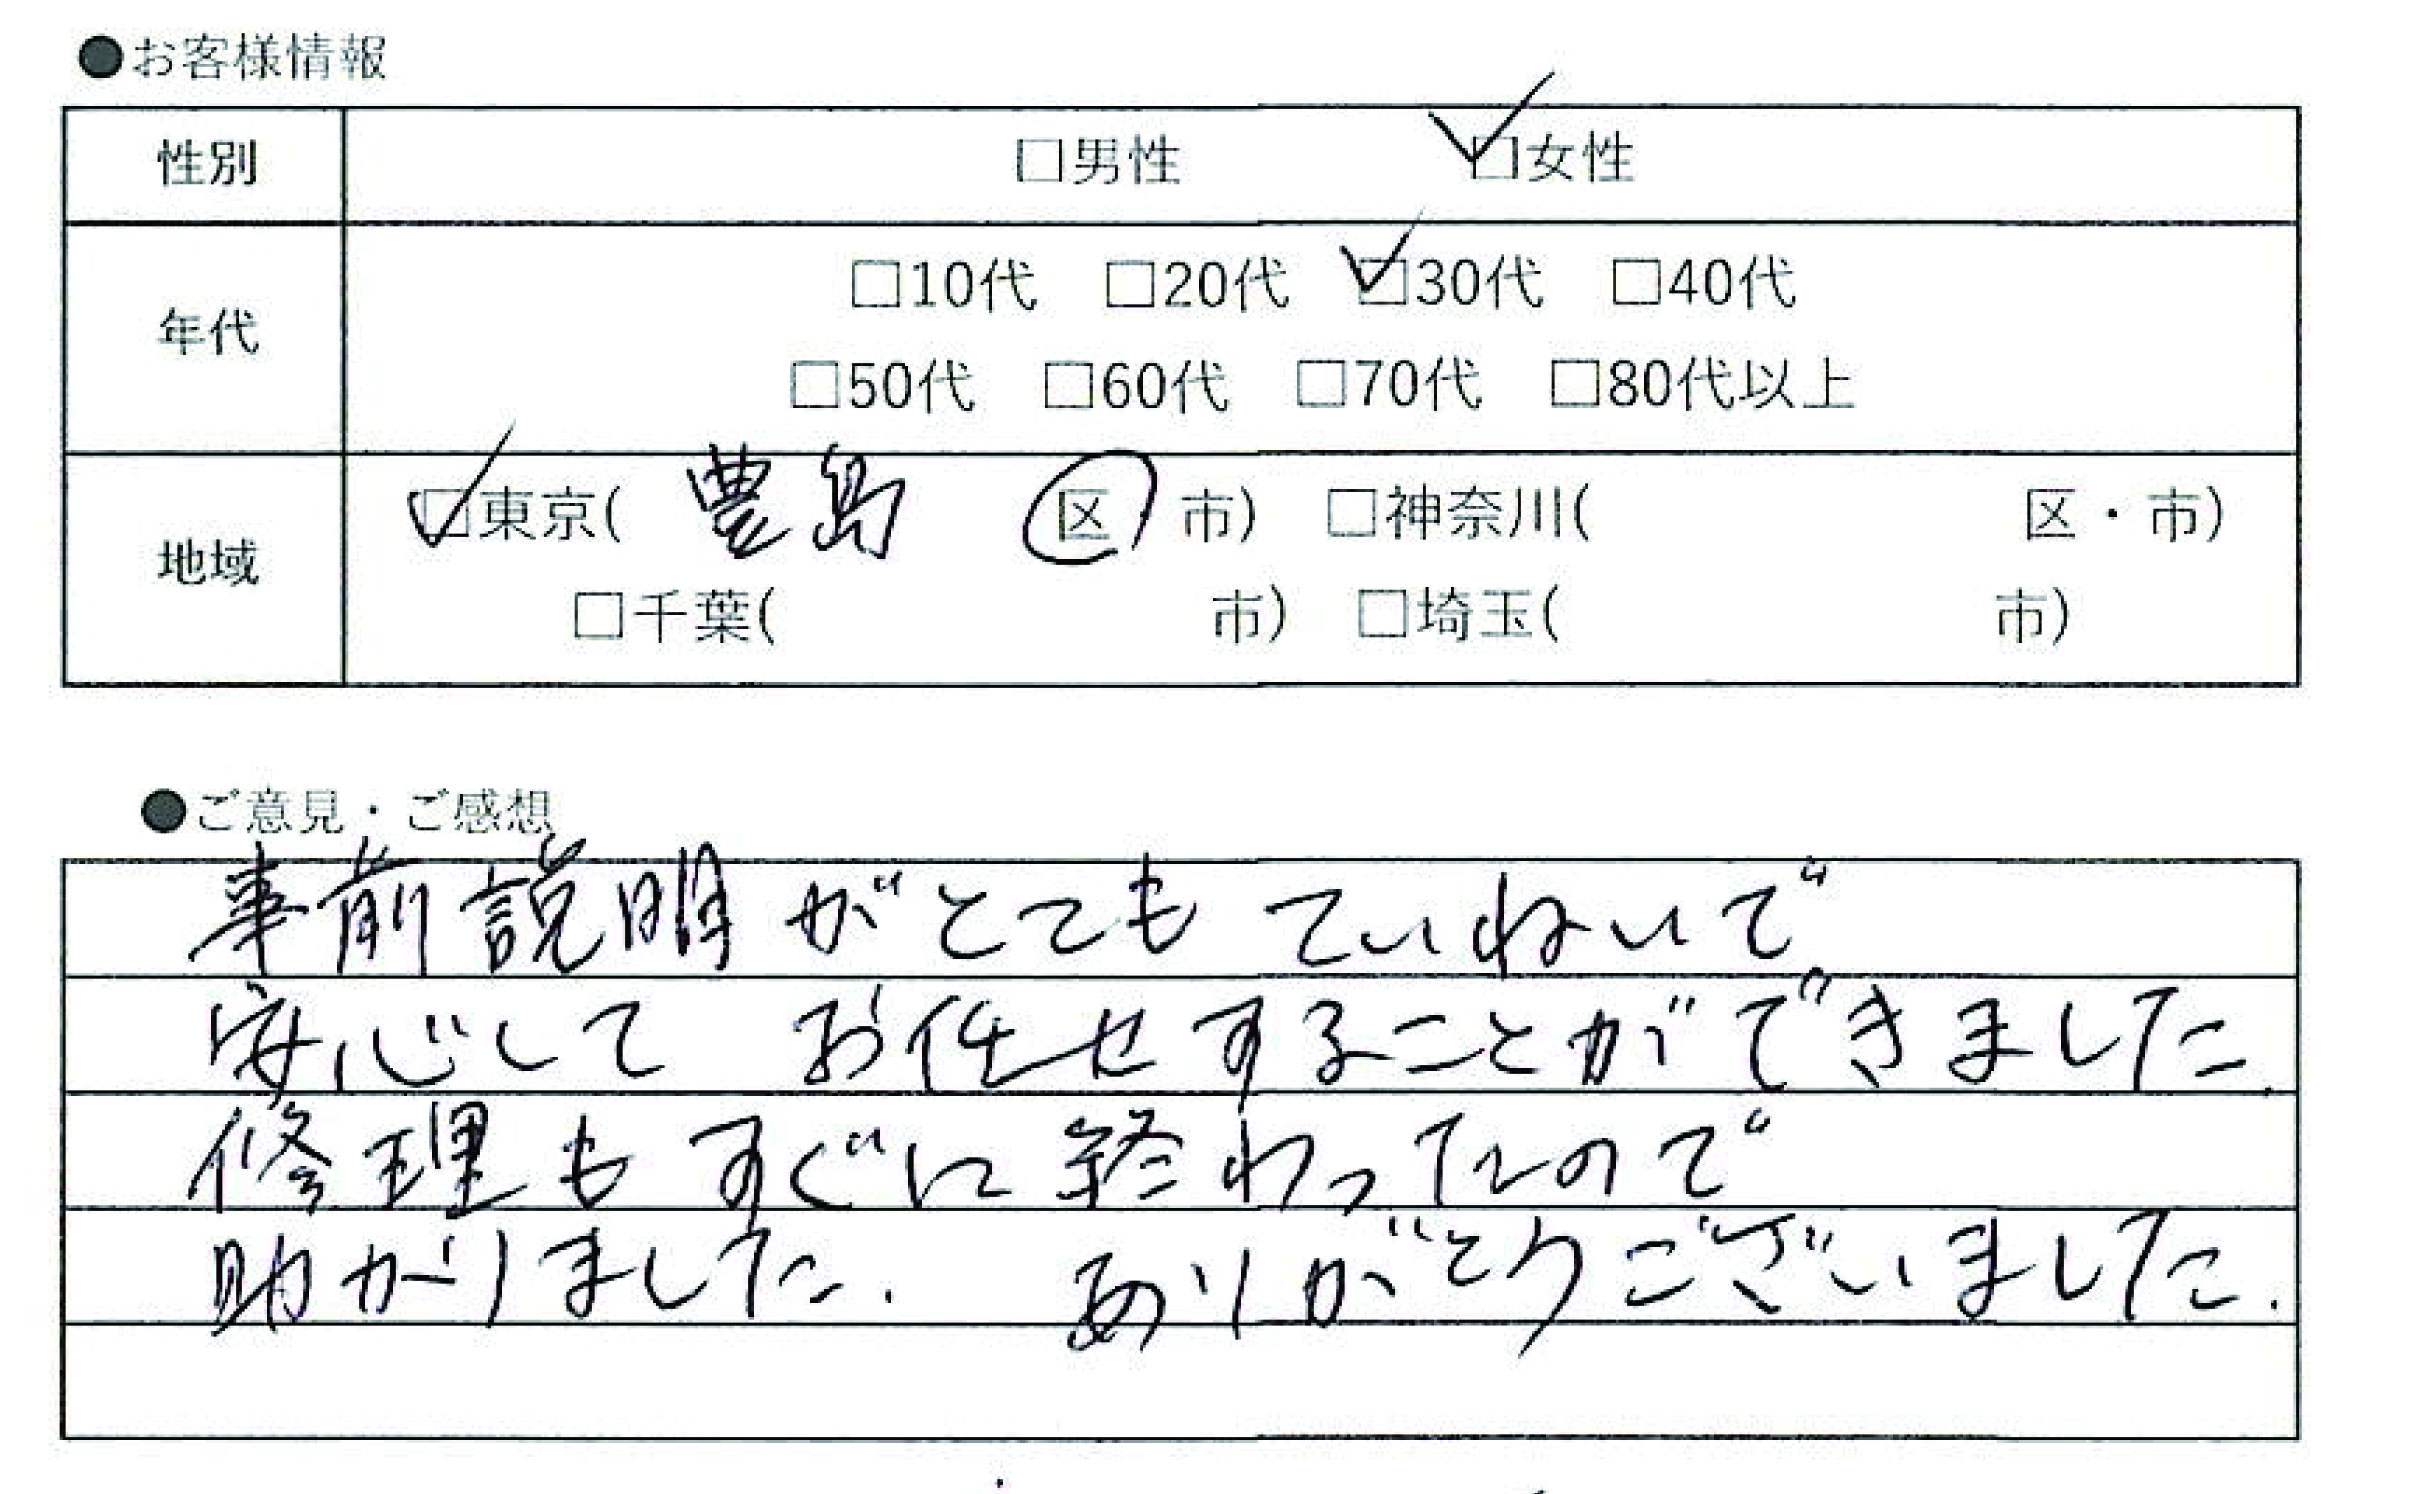 ●お客様情報
性別 □男性 ☑女性
年代 □10代 □20代 ☑30代 □40代
□50代 □60代 □70代 □80代以上
地域 ☑東京( 豊島 区・市) □神奈川( 区・市)
□千葉( 市) □埼玉( 市)
●ご意見・ご感想
事前説明がとてもていねいで
安心して お任せすることができました.
修理もすぐに終わったので
助かりました. ありがとうございました.